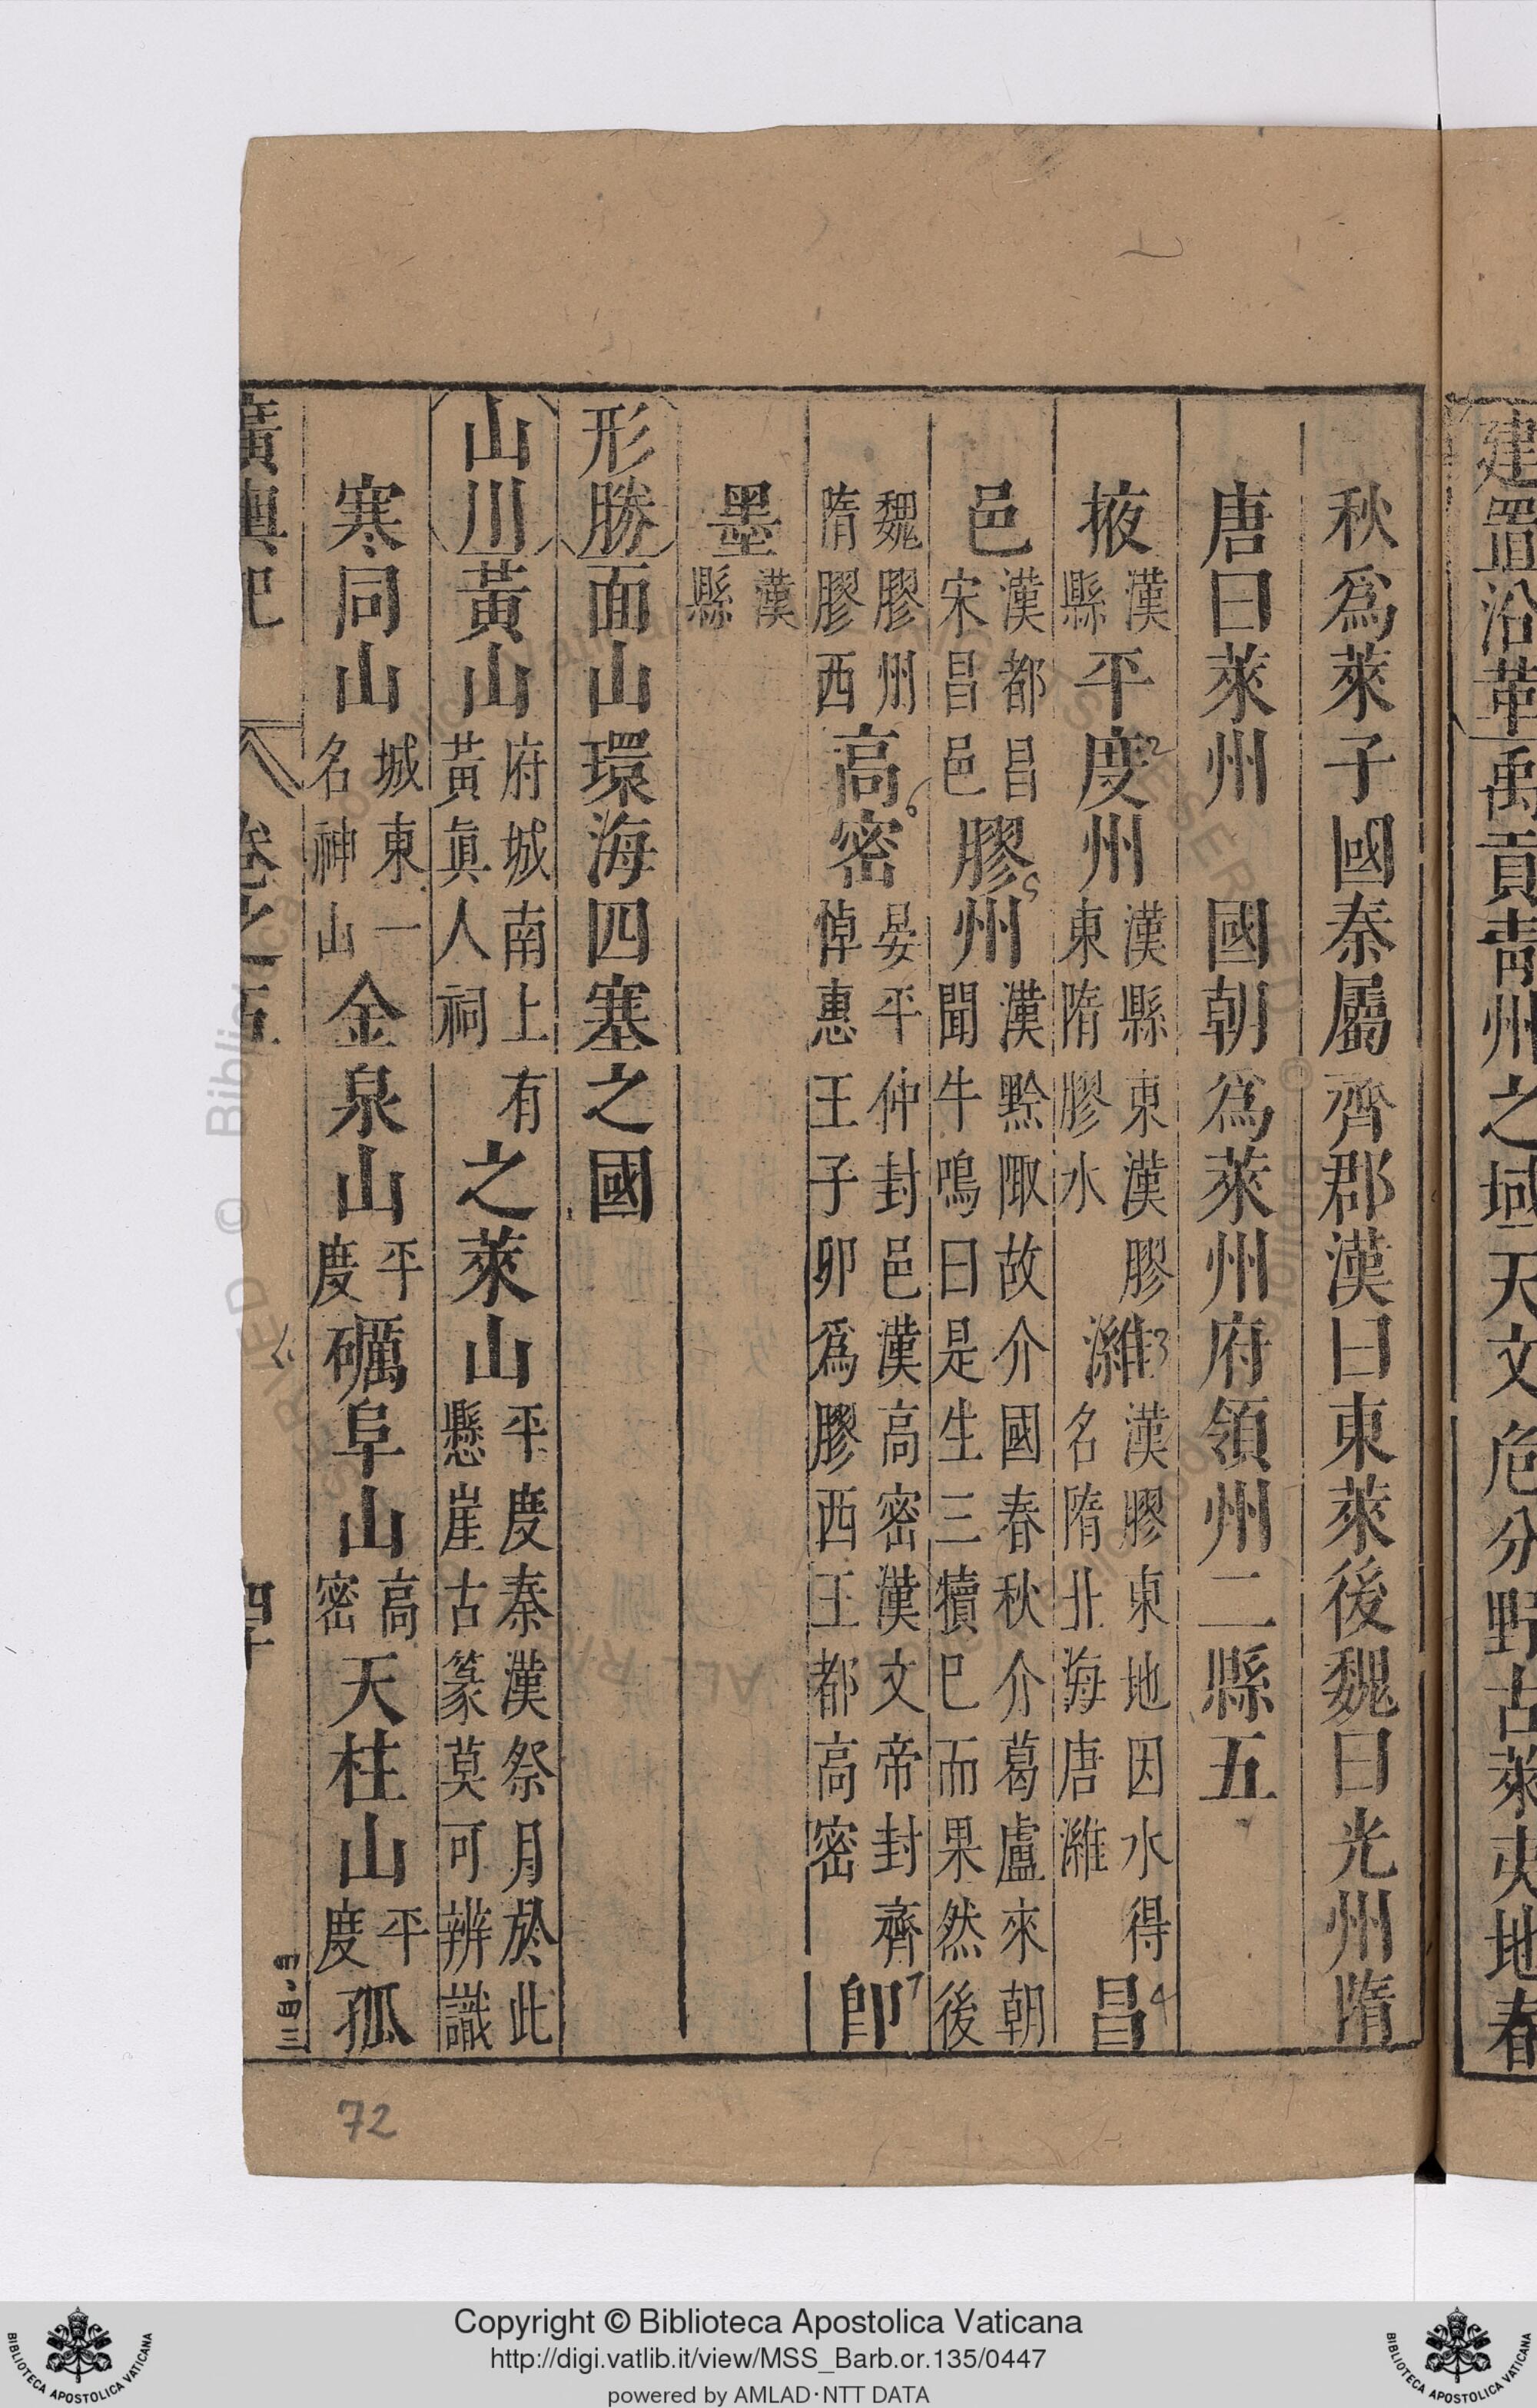 建置沿革禹貢青州之域天文危分野古萊夷地春
秋爲萊子國秦屬齊郡漢曰東萊後魏曰光州隋
唐曰萊州 國朝爲萊州府領州二縣五
掖漢縣平度州漢縣東漢膠東隋膠水濰漢膠東地因水得名隋北海唐濰昌
邑漢都昌宋昌邑膠州漢黔陬故介國春秋介葛盧來朝聞牛鳴曰是生三犢巳而果然後
魏膠州隋膠西高密晏平仲封邑漢高密漢文帝封齊悼惠王子卬爲膠西王都高密卽
墨漢縣
形勝面山環海四塞之國
山川黃山府城南上有黃眞人祠之萊山平度秦漢祭月於此懸崖古篆莫可辨識
寒同山城東一名神山金泉山平度礪阜山高密天柱山平度孤
廣輿記 卷之五 四
72
Copyright © Biblioteca Apostolica Vaticana
http://digi.vatlib.it/view/MSS_Barb.or.135/0447
powered by AMLAD·NTT DATA
BIBLIOTECA APOSTOLICA VATICANA
BIBLIOTECA APOSTOLICA VATICANA